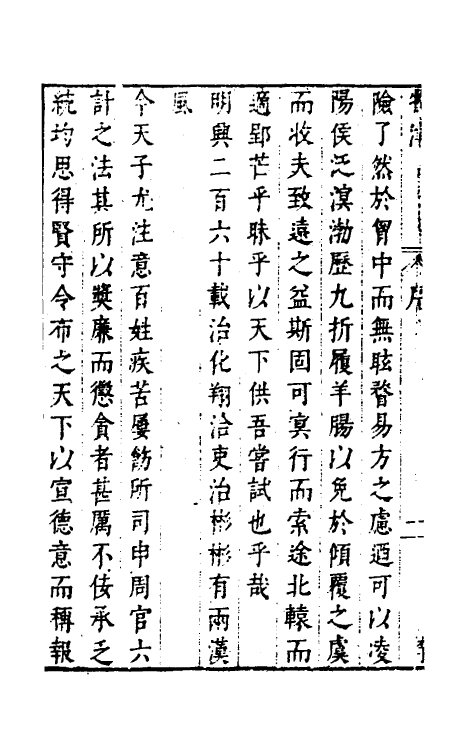 險了然於胷中而無眩瞀易方之慮廼可以凌
陽侯泛溟渤歷九折履羊腸以免於傾覆之虞
而收夫致遠之益斯固可冥行而索途北轅而
適郢芒乎昧乎以天下供吾嘗試也乎哉
明興二百六十載治化翔洽吏治彬彬有兩漢
風
今天子尤注意百姓疾苦屢飭所司申周官六
計之法其所以奬廉而懲貪者甚厲不佞承乏
統均思得賢守令布之天下以宣德意而稱報